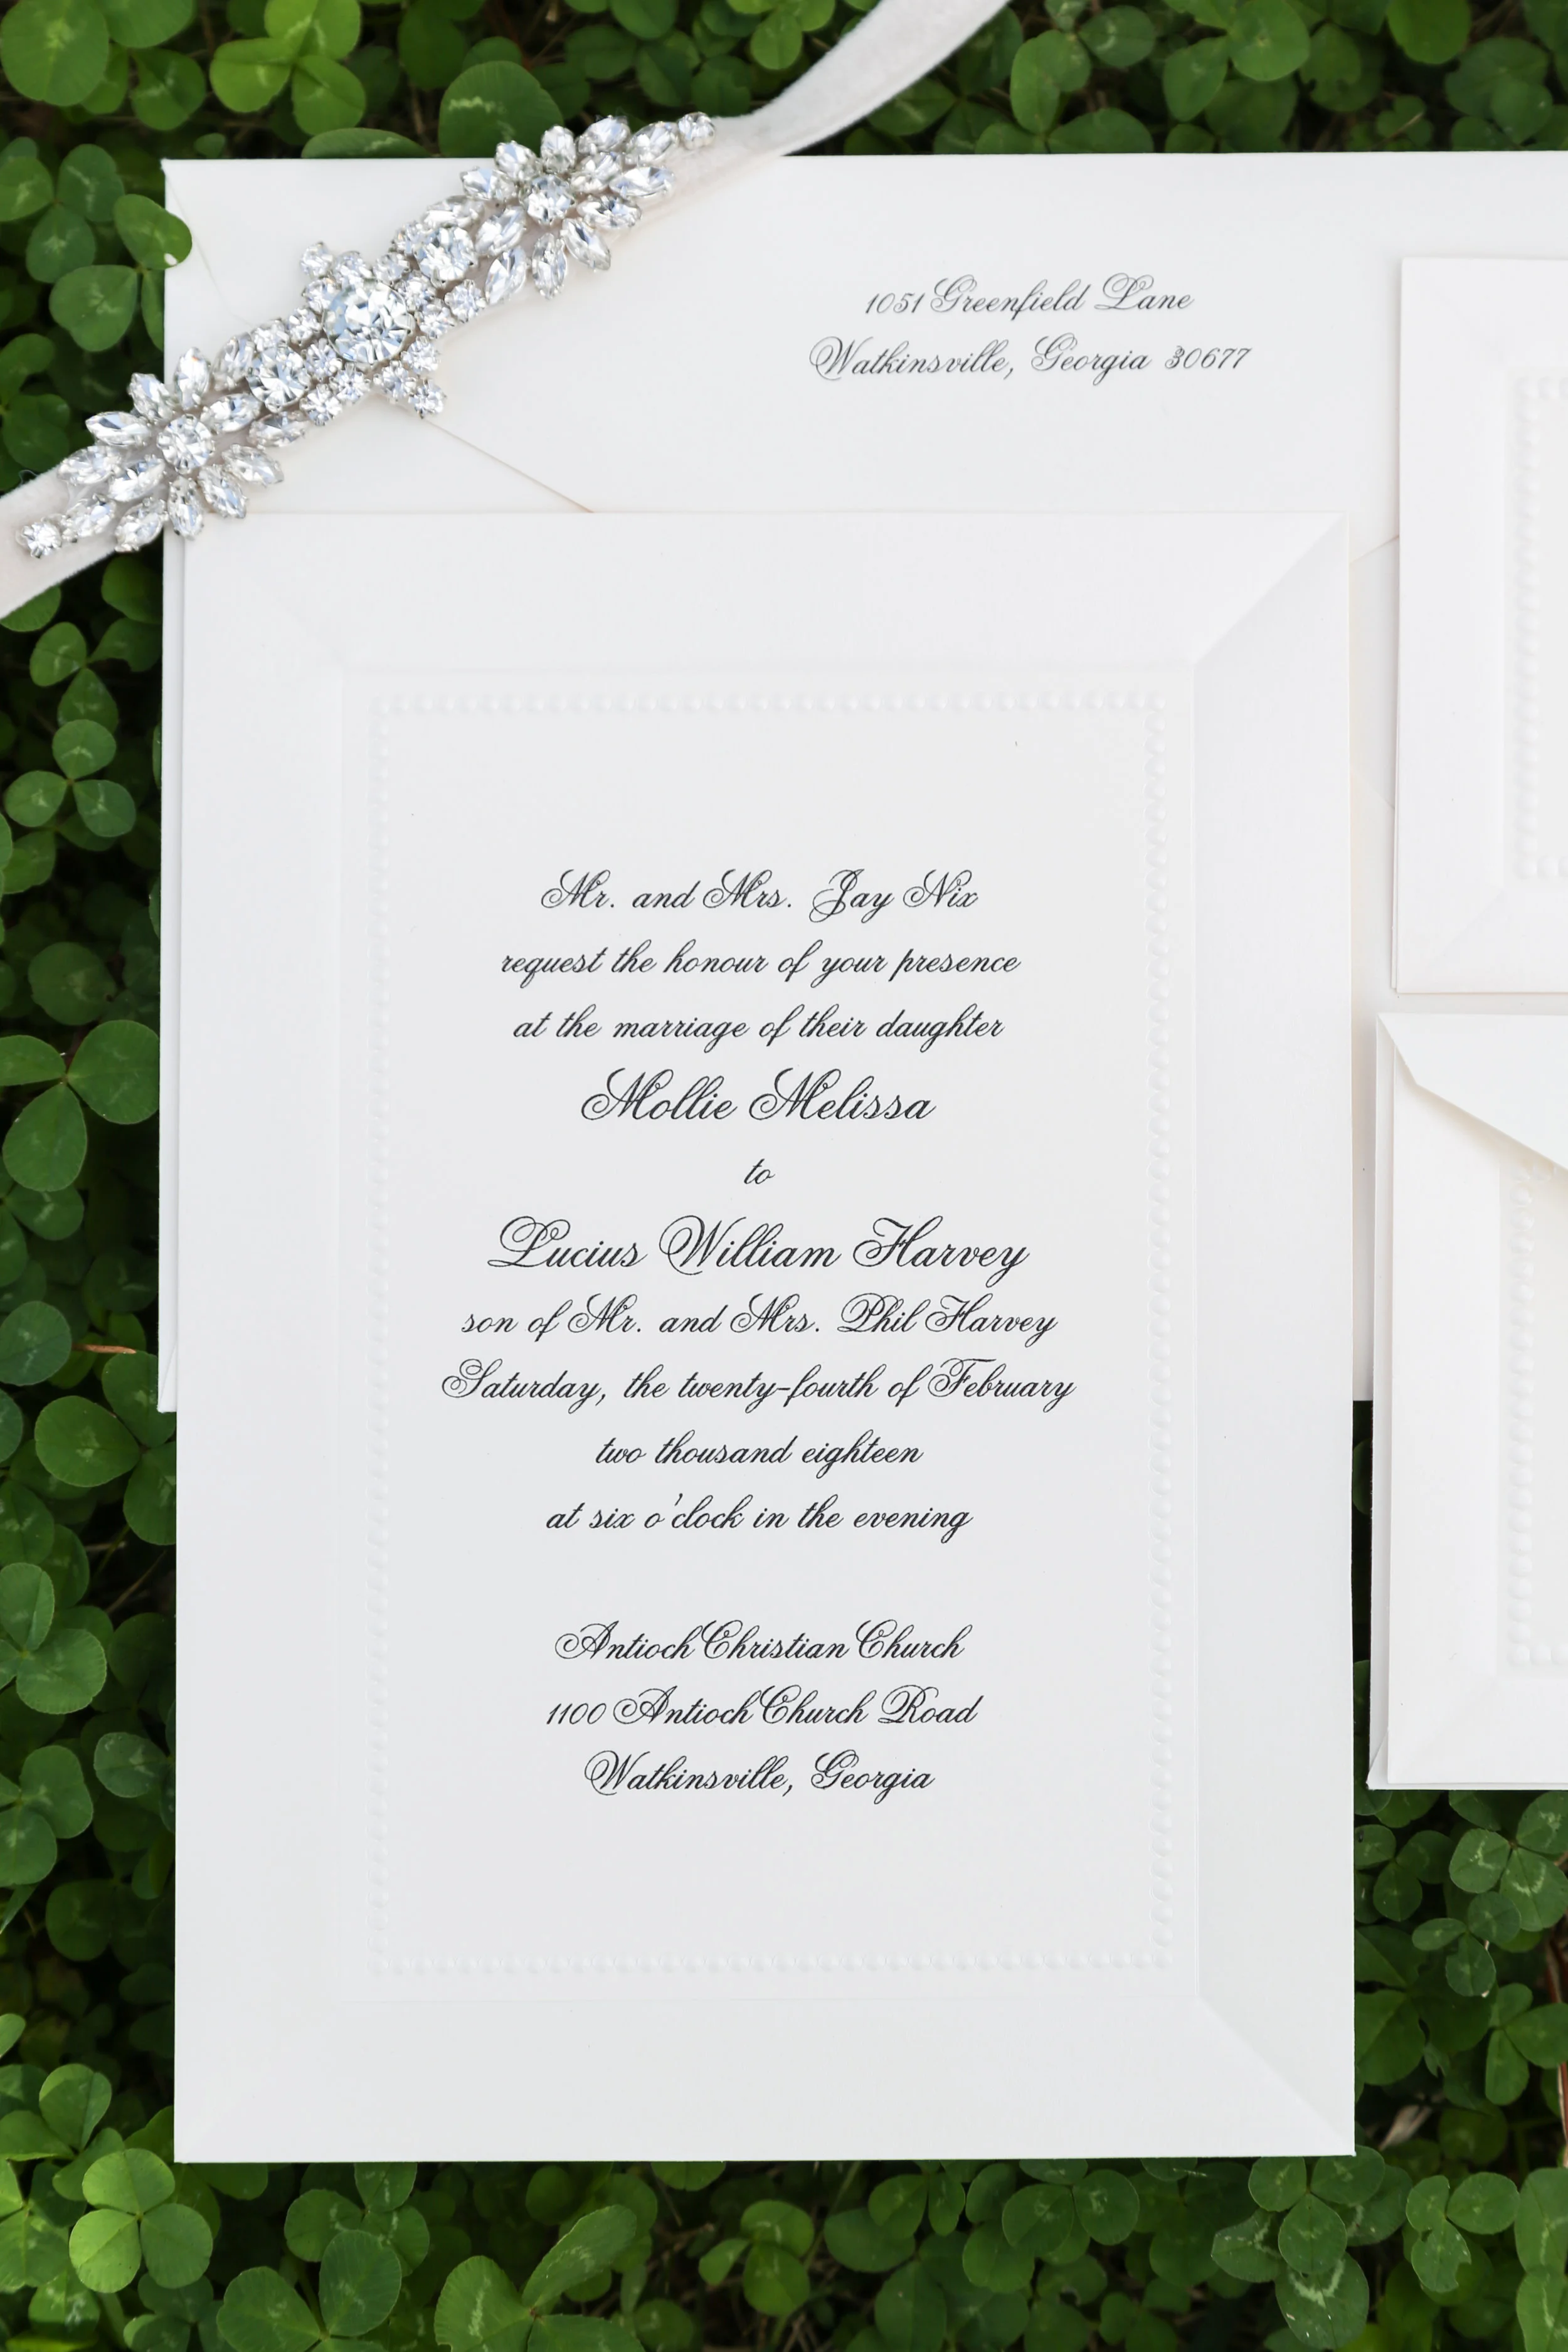 1051 Greenfield Lane
Watkinsville, Georgia 30677
Mr. and Mrs. Jay Nix
request the honour of your presence
at the marriage of their daughter
Mollie Melissa
to
Lucius William Harvey
son of Mr. and Mrs. Phil Harvey
Saturday, the twenty-fourth of February
two thousand eighteen
at six o'clock in the evening
Antioch Christian Church
1100 Antioch Church Road
Watkinsville, Georgia